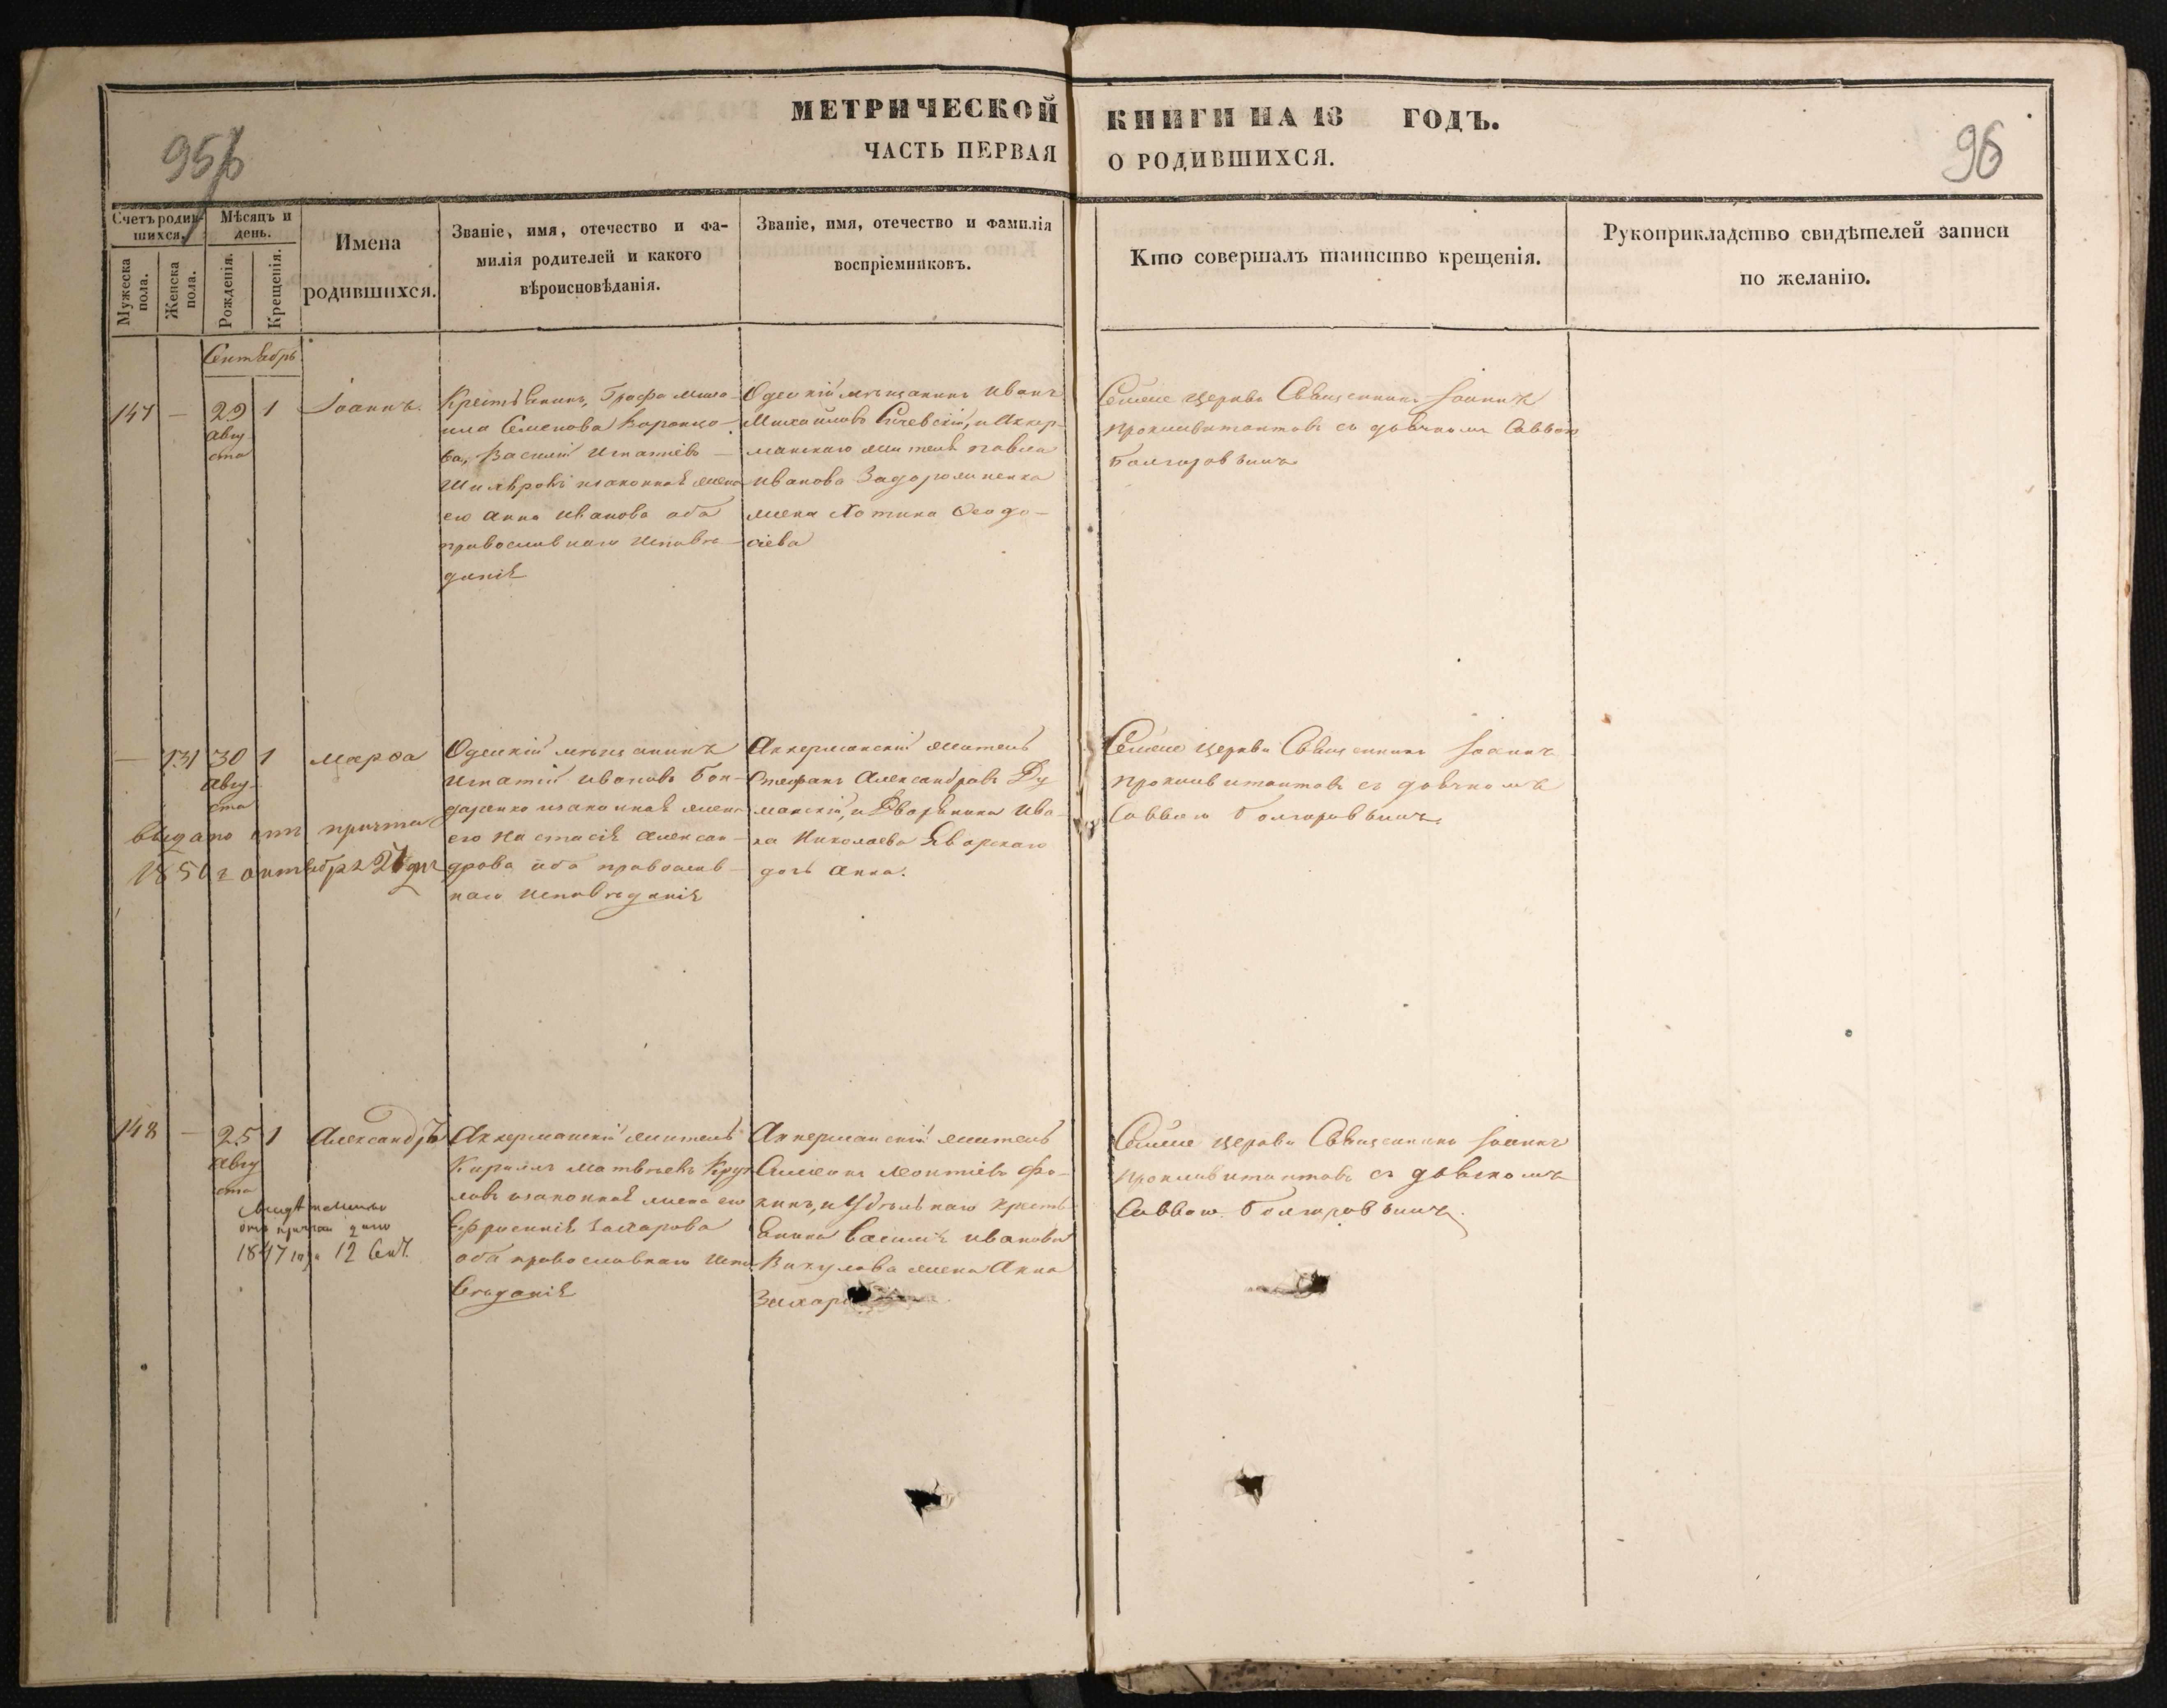 МЕТРИЧЕСКОЙ КНИГИ НА 18 ГОДЪ.
ЧАСТЬ ПЕРВАЯ О РОДИВШИХСЯ.
96
Счетъ родив-
шихся.
Мужеска пола.
Женска пола.
Мѣсяцъ и
день.
Рожденія.
Крещенія.
Имена
родившихся.
Званіе, имя, отечество и фа-
милія родителей и какого
вѣроисповѣданія.
Званіе, имя, отечество и фамилія
воспріемниковъ.
Кто совершалъ таинство крещенія.
Рукоприкладство свидѣтелей записи
по желанію.
Сентябрь
147 — 29 1
Авгу-
ста
Іоаннъ.
Крестьянинъ, Графа Миха-
ила Семенова Воронцо-
ва, Василій Игнатіевъ
изаконная жена
его Анна Иванова оба
православнаго исповѣ-
данія
Одескій мѣщанинъ Иванъ
Михайловъ и Аккер-
манскаго жителя Павла
Иванова Задорожненка
жена Феодо-
сіева
Священникъ Іоаннъ
съ дьячкомъ Саввою
Болгаровымъ
— 131 30 1
Авгу-
ста
Марѳа
Одескій мѣщанинъ
Игнатій Ивановъ Бон-
даренко изаконная жена
его Настасія Алексан-
дрова оба православ-
наго исповѣданія
Аккерманскій житель
Стефанъ Александровъ Ду-
манскій, и Дворянина Ива-
на Николаева Яворскаго
дочь Анна.
Священникъ Іоаннъ
съ дьячкомъ
Саввою Болгаровымъ
выдано отъ причта
1850 г октября 21 дня
148 — 25 1
Авгу
ста
Александръ
Аккерманскій житель
Кириллъ Матвѣевъ Круг-
ловъ изаконная жена его
Ефросинія Захарова
оба православнаго испо-
вѣданія
Аккерманскій житель
Симеонъ Леонтіевъ Фо-
кинъ, и Удѣльнаго кресть-
янина Василія Иванова
Викулова жена Анна
Захар
Священникъ Іоаннъ
съ дьячкомъ
Саввою Болгаровымъ
отъ причта дано
1847 года 12 Сен.